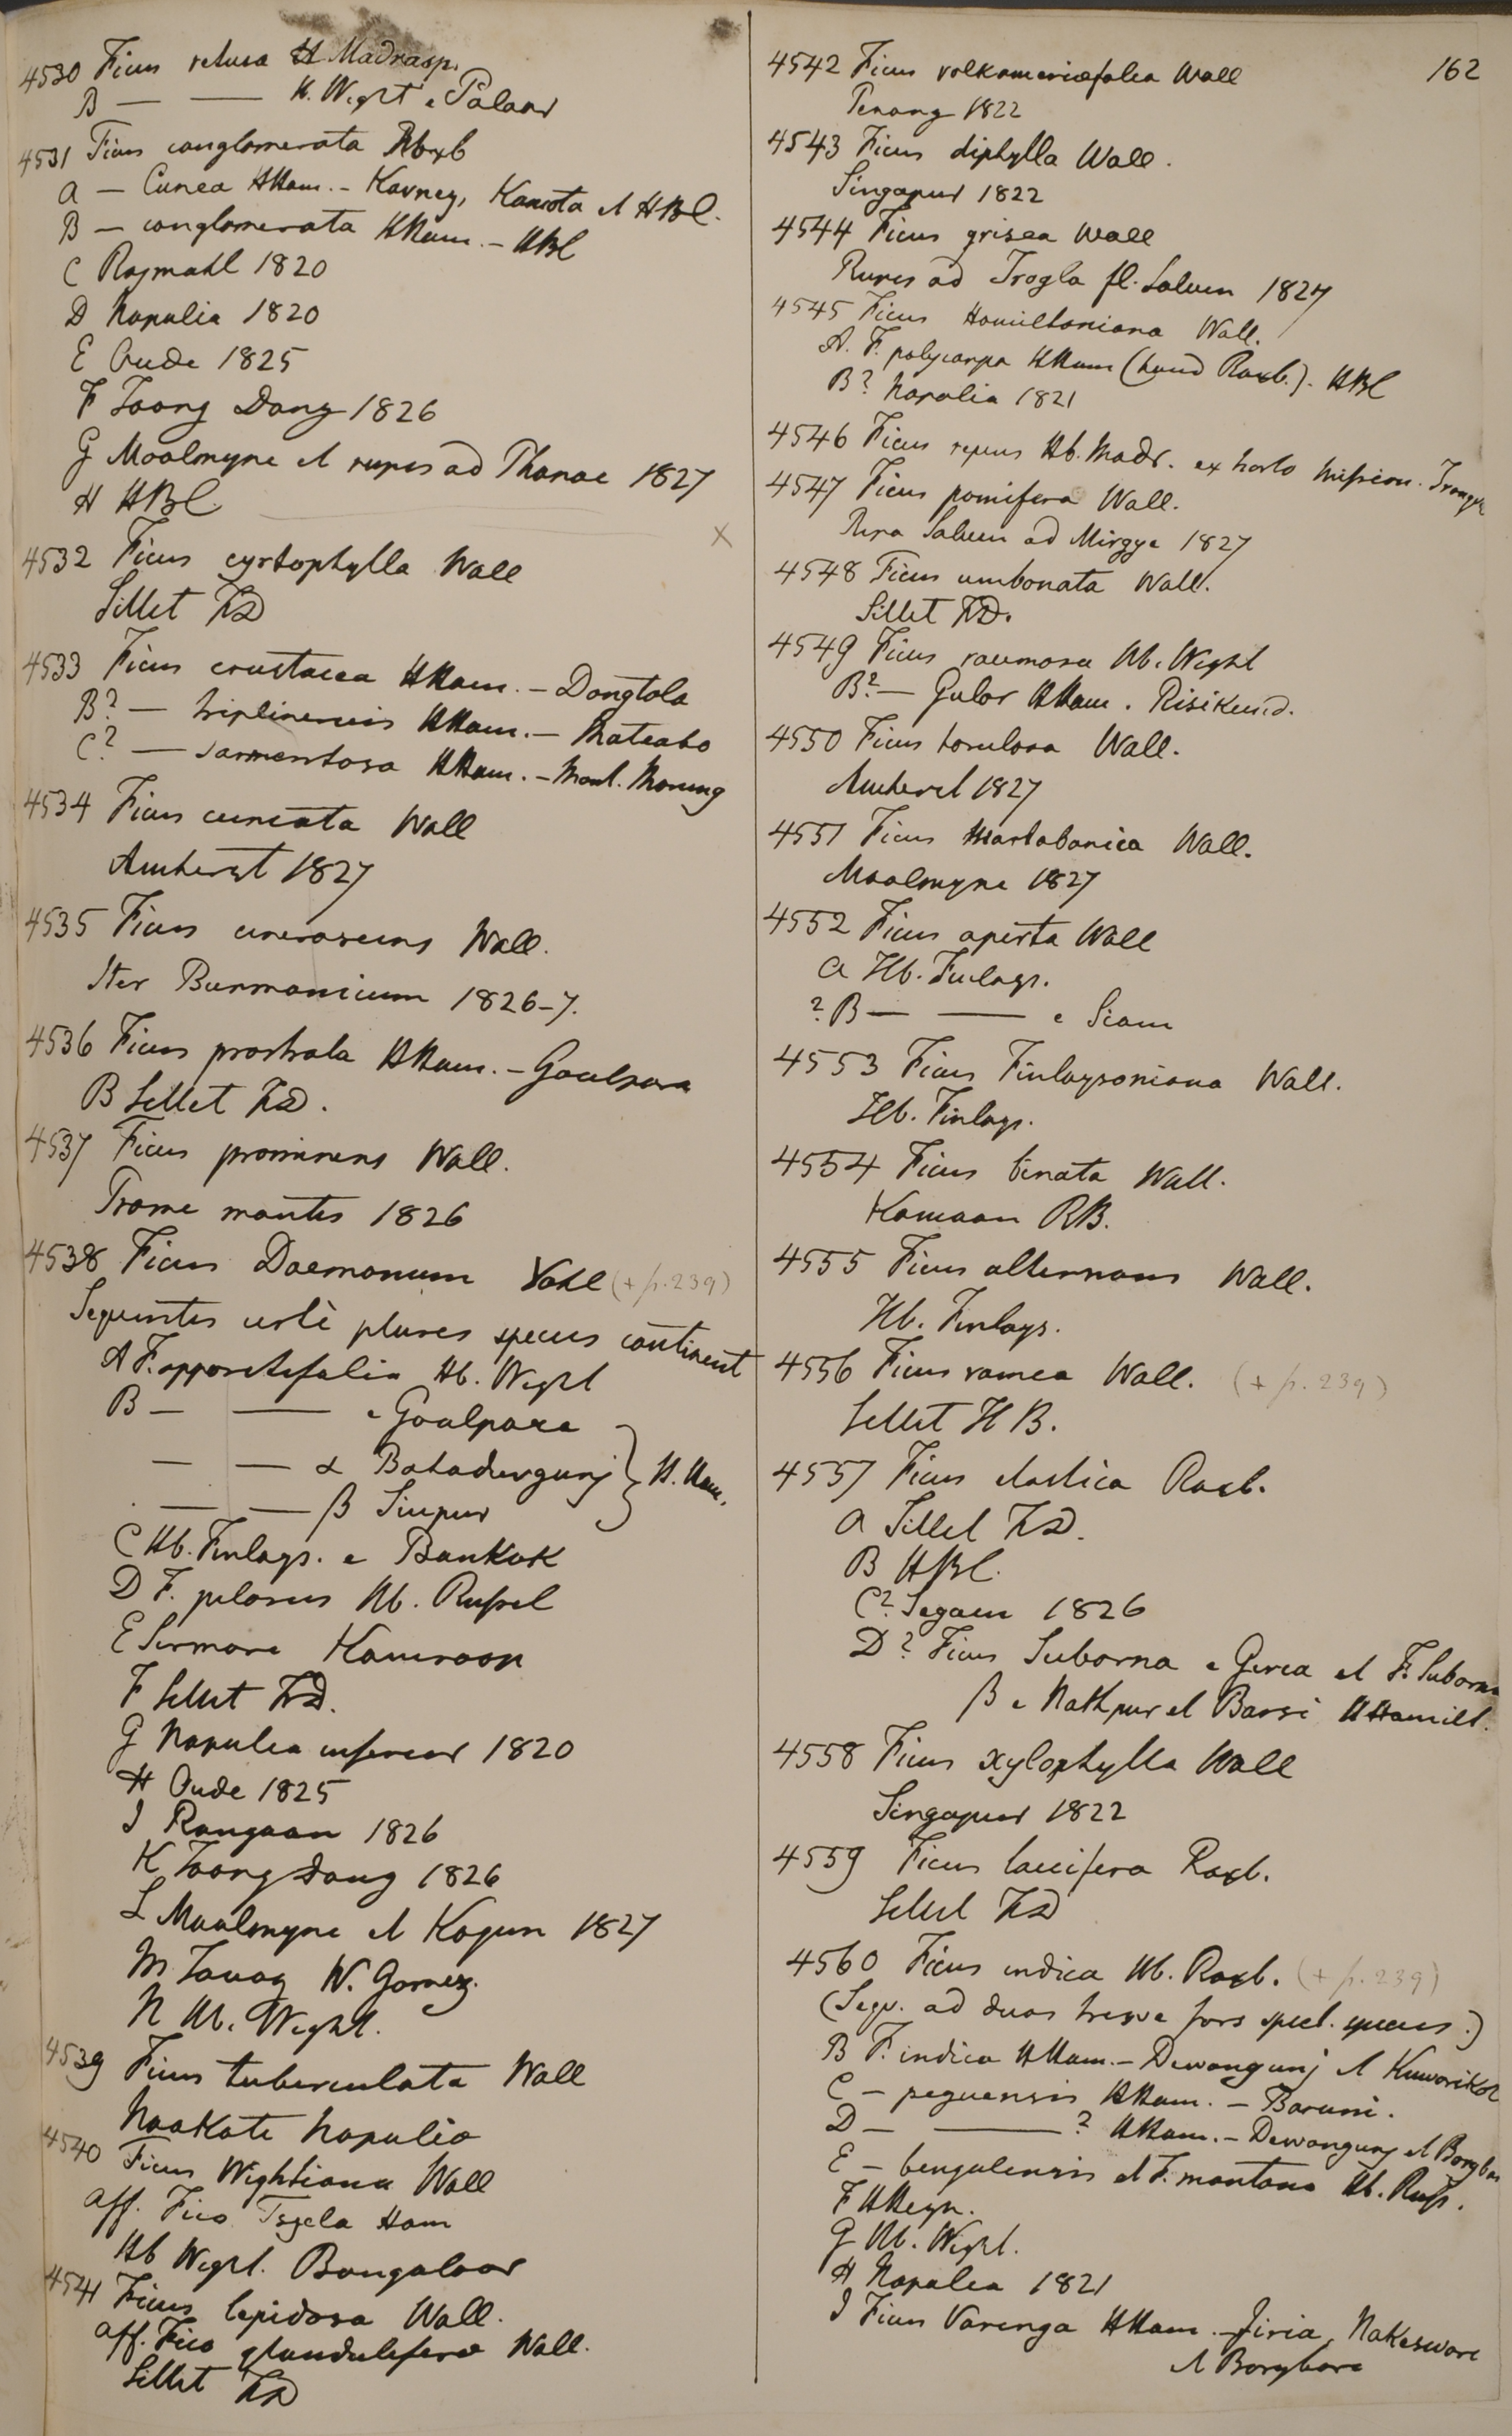 4530 Ficus retusa H Madrasp.
B — — H. Wight e Palaar
4531 Ficus conglomerata Roxb
a — Cunea HHam. - Kavney, et HBl.
B — conglomerata HHam. - HBl
C Rajmahl 1820
D Napalia 1820
E Oude 1825
F Toong Dong 1826
G Moalmyne et rupes ad Thanae 1827
H HBl
4532 Ficus cyrtophylla Wall
Sillet FD
4533 Ficus crustacea HHam. - Dongtola
B? — triplinervis HHam. -
C? — sarmentosa HHam. - Mont. Morung
4534 Ficus cuneata Wall
Amherst 1827
4535 Ficus cinerascens Wall.
Iter Burmanicum 1826-7.
4536 Ficus prostrata HHam. - Goalpara
B Sillet FD.
4537 Ficus prominens Wall.
Prome montes 1826
4538 Ficus Daemonum Vahl (+ p. 239)
Sequentes certè plures species continent
A F. oppositifolia Hb. Wight
B — — e Goalpara
— — α Bahadurgunj } H. Ham.
— — β Sinpur
C Hb. Finlays. e Bankok
D F. pilosus Hb. Russel
E Sirmore Kamroon
F Sillet FD.
G Napalea inferior 1820
H Oude 1825
I Rangoon 1826
K Toong Dong 1826
L Moalmyne et Kogun 1827
M Tavoy W. Gomez.
N Hb. Wight.
4539 Ficus tuberculata Wall
Noakote Napalia
4540 Ficus Wightiana Wall
aff. Fico Tsjela Ham
Hb Wight. Bangaloor
4541 Ficus lepidosa Wall.
aff. Fico glandulifera Wall.
Sillet FD
162
4542 Ficus volkameriaefolia Wall
Penang 1822
4543 Ficus diphylla Wall.
Singapur 1822
4544 Ficus grisea Wall
Rupes ad Trogla fl. Saluen 1827
4545 Ficus Hamiltoniana Wall.
A. F. polycarpa HHam (haud Roxb.). HBl
B? Napalia 1821
4546 Ficus repens Hb. Madr. ex horto mission. Tranqu
4547 Ficus pomifera Wall.
Ripa Saluen ad Mirgye 1827
4548 Ficus umbonata Wall.
Sillet FD.
4549 Ficus racemosa Hb. Wight
B? — Gular HHam. Risikund.
4550 Ficus torulosa Wall.
Amherst 1827
4551 Ficus Martabanica Wall.
Moalmyne 1827
4552 Ficus aperta Wall
a Hb. Finlays.
? B — — e Siam
4553 Ficus Finlaysoniana Wall.
Hb. Finlays.
4554 Ficus binata Wall.
Kamaon RB.
4555 Ficus alternans Wall.
Hb. Finlays.
4556 Ficus ramea Wall. (+ p. 239)
Sillet H B.
4557 Ficus elastica Roxb.
a Sillet FD.
B HBl.
C? Segaen 1826
D? Ficus Suborna e Gerea et F. Suborna
β e Nathpur et Barsi HHamilt.
4558 Ficus xylophylla Wall
Singapur 1822
4559 Ficus laccifera Roxb.
Sillet FD
4560 Ficus indica Hb. Roxb. (+ p. 239)
(Sequ. ad duas tresve fors spect. species.)
B F. indica HHam. - Dewangunj et Kuwarikol
C — peguensis HHam. - Baruni.
D — — ? HHam. - Dewangunj et Borgbar
E — bengalensis et F. montana Hb. Russ.
F HHeyn.
G Hb. Wight.
H Napalea 1821
I Ficus Varenga HHam. - Jiria, Nakeswore
et Borgbare